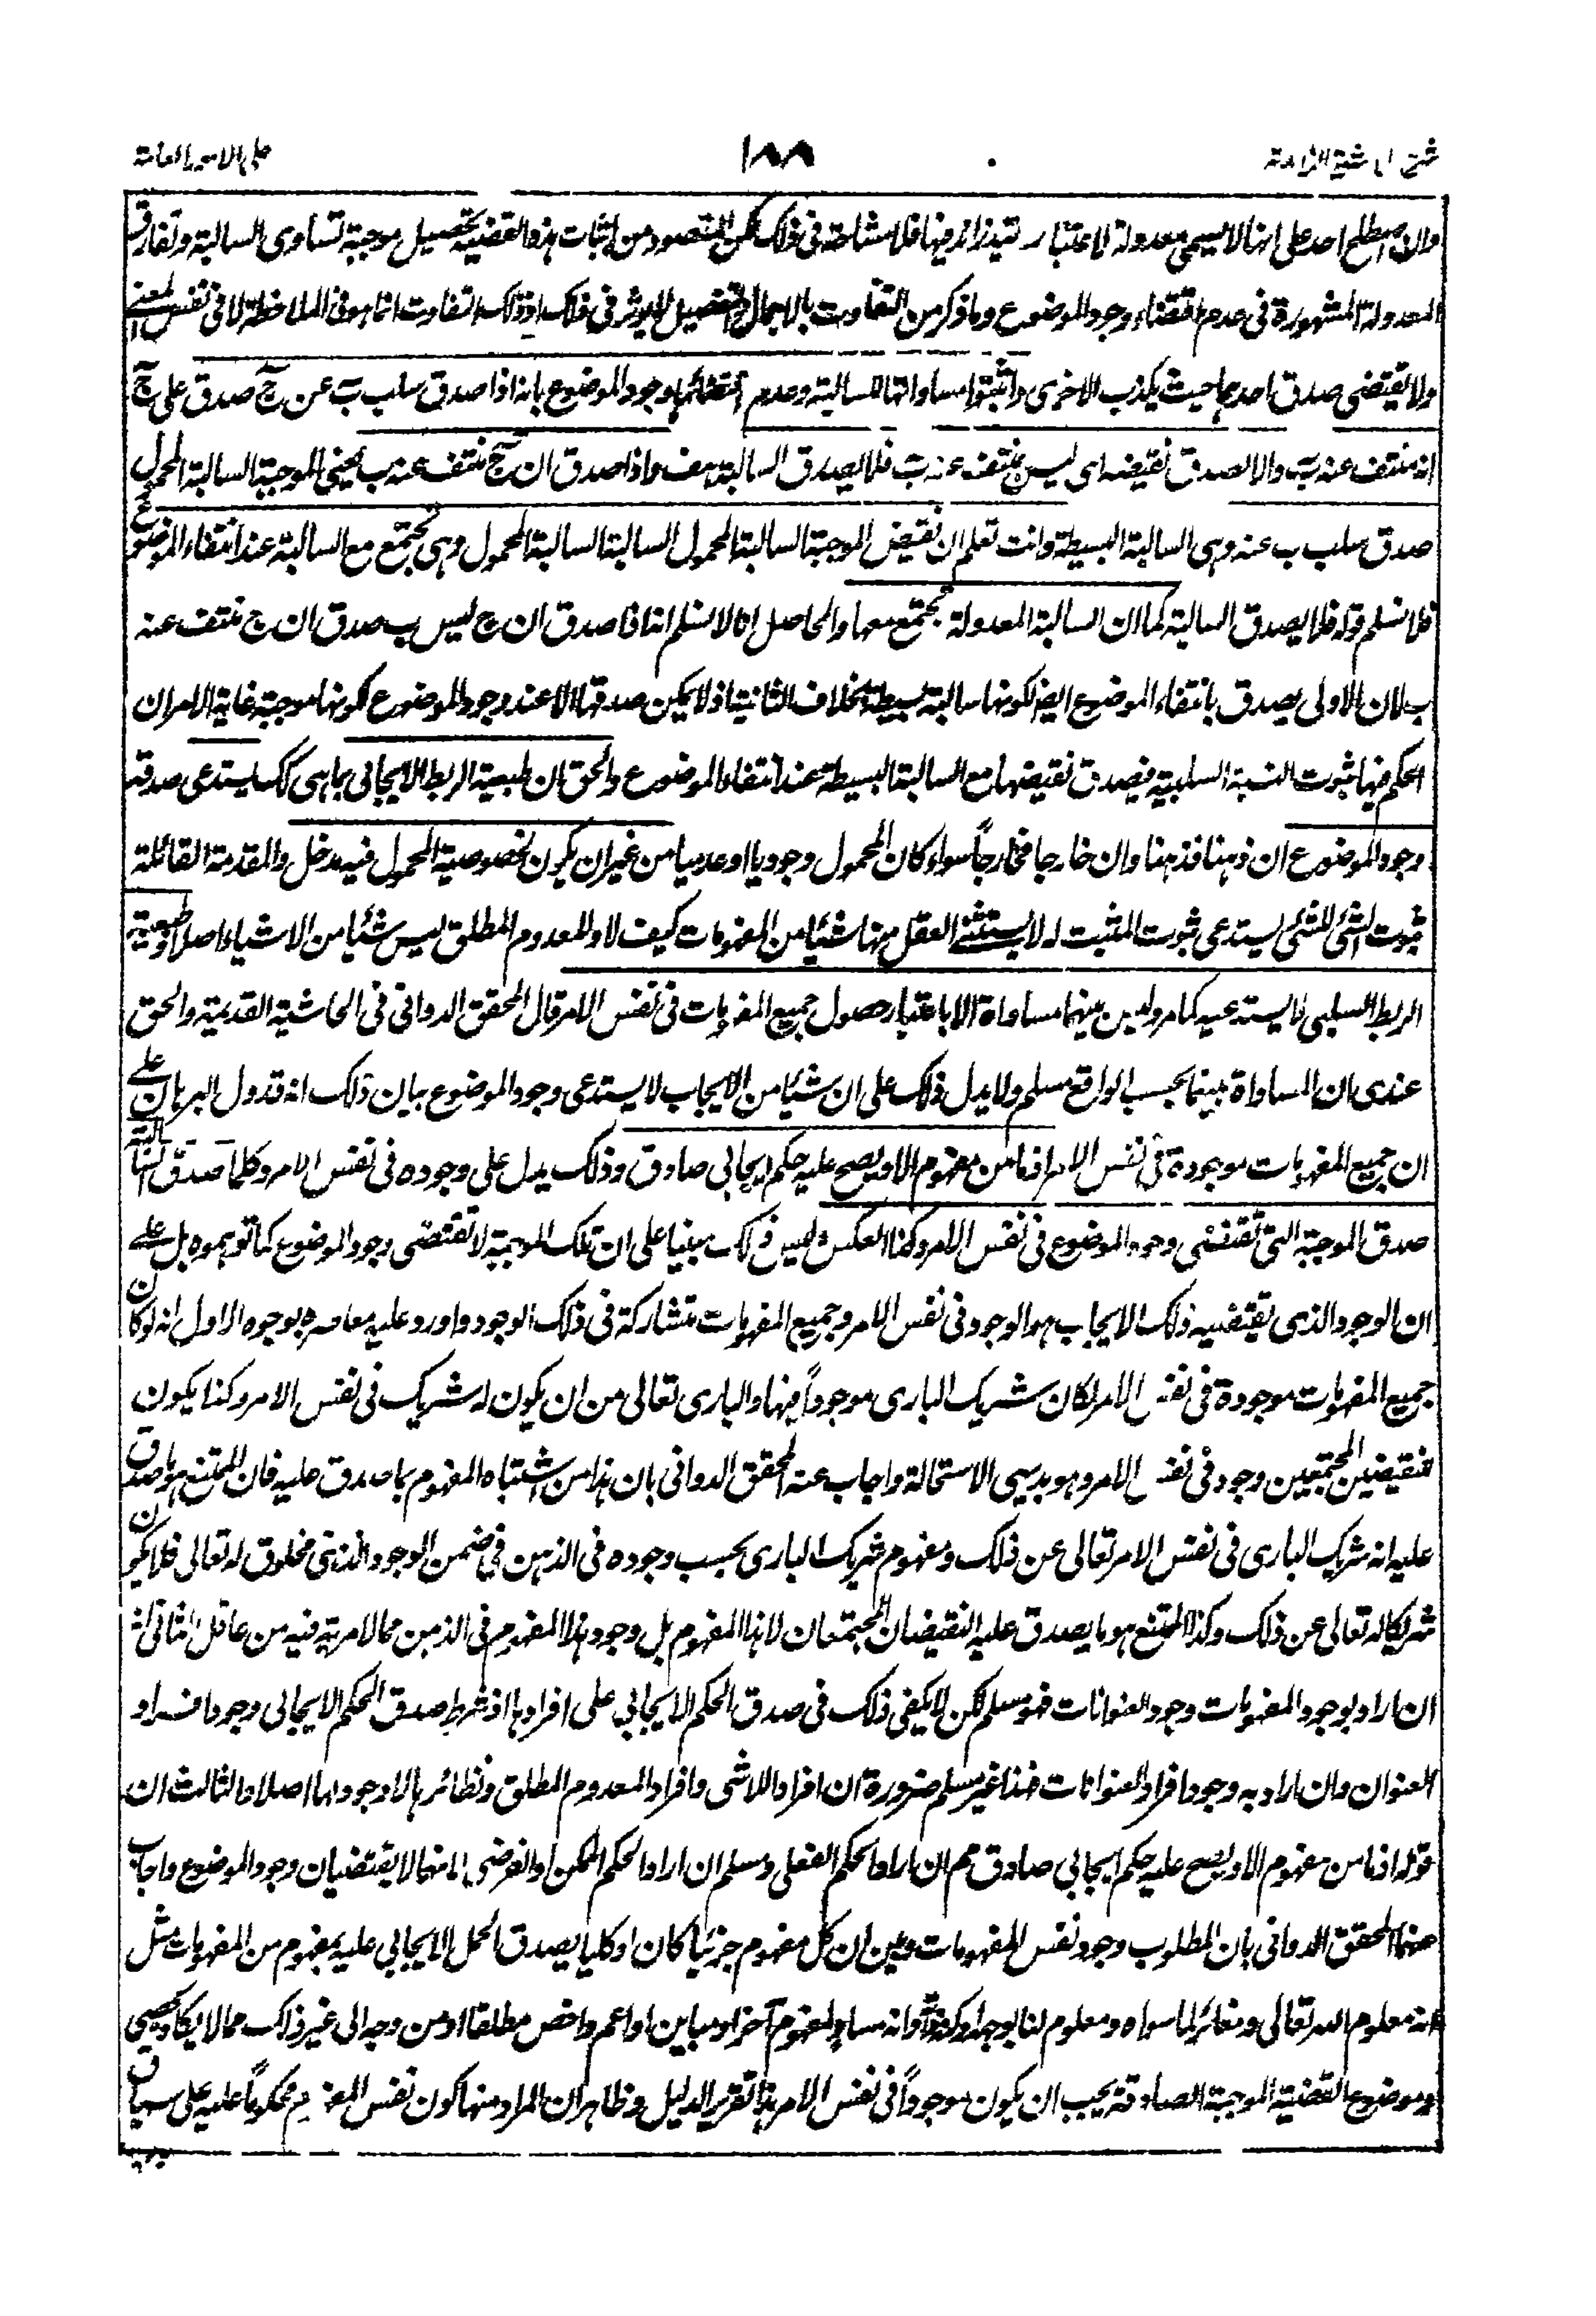 ١٨٨
على الامور العامة
وان اصطلح احد على انها لا يسمى معدولة لاعتبار قيد زائد فيها فلا مشاحة فى ذلك لكن المقصود من اثبات هذه القضية تحصيل موجبة تساوى السالبة وتفارق
المعدولة المشهورة فى عدم اقتضاء وجود الموضوع وما ذكر من التفاوت بالاجمال والتفصيل لا يوثر فى ذلك اذ ذلك التفاوت انما هو فى الملاحظة لا فى نفس المعنى
ولا يقتضى صدق احدهما حيث يكذب الاخرى واثبتوا مساواتها للسالبة وعدم اقتضائها وجود الموضوع بانه اذا صدق سلب ب عن ج صدق على ج
انه منتف عنه ب والا لصدق نقيضه اى ليس ج منتف عنه ب فلا يصدق السالبة هف واذا صدق ان ج منتف عنه ب يعنى الموجبة السالبة المحمول
صدق سلب ب عنه وهى السالبة البسيطة وانت تعلم ان نقيض الموجبة السالبة المحمول السالبة السالبة المحمول وهى تجتمع مع السالبة عند انتفاء الموضوع
فلا نسلم قوله فلا يصدق السالبة كما ان السالبة المعدولة تجتمع معها والحاصل انا لا نسلم انه اذا صدق ان ج ليس ب صدق ان ج منتف عنه
ب لان الاولى يصدق بانتفاء الموضوع ايضا لكونها سالبة بسيطة بخلاف الثانية اذ لا يمكن صدقها الا عند وجود الموضوع لكونها موجبة غاية الامر ان
الحكم فيها ثبوت النسبة السلبية فيصدق نقيضها مع السالبة البسيطة عند انتفاء الموضوع والحق ان طبيعة الربط الايجابى بما هى كك يستدعى صدقه
وجود الموضوع ان ذهنا فذهنا وان خارجا فخارجاً سواء كان المحمول وجوديا او عدميا من غير ان يكون لخصوصية المحمول فيه مدخل والمقدمة القائلة
ثبوت الشئ للشئ يستدعى ثبوت المثبت له لا يستثنى العقل منها شيئا من المفهومات كيف لا والمعدوم المطلق ليس شيئا من الاشياء اصلا وطبيعة
الربط السلبى لا يستدعيه كما مر وليس بينهما مساواة الا باعتبار حصول جميع المفهومات فى نفس الامر قال المحقق الدوانى فى الحاشية القديمة والحق
عندى ان المساواة بينهما بحسب الواقع مسلم ولا يدل ذلك على ان شيئا من الايجاب لا يستدعى وجود الموضوع بيان ذلك انه قد دل البرهان على
ان جميع المفهومات موجودة فى نفس الامر اذ ما من مفهوم الا ويصح عليه حكم ايجابى صادق وذلك يدل على وجوده فى نفس الامر وكلما صدق السالبة
صدق الموجبة التى تقتضى وجود الموضوع فى نفس الامر وكذا العكس وليس ذلك مبنيا على ان تلك الموجبة لا تقتضى وجود الموضوع كما توهموه بل على
ان الوجود الذى يقتضيه ذلك الايجاب هو الوجود فى نفس الامر وجميع المفهومات متشاركة فى ذلك الوجود واورد عليه معاصره بوجوه الاول انه لو كان
جميع المفهومات موجودة فى نفس الامر لكان شريك البارى موجوداً فيها والبارى تعالى من ان يكون له شريك فى نفس الامر وكذا يكون
للنقيضين المجتمعين وجود فى نفس الامر وهو بديهى الاستحالة واجاب عنه المحقق الدوانى بان هذا من اشتباه المفهوم بما صدق عليه فان الممتنع هو ما صدق
عليه انه شريك البارى فى نفس الامر تعالى عن ذلك ومفهوم شريك البارى بحسب وجوده فى الذهن فى ضمن الوجود الذهنى مخلوق له تعالى فلا يكون
شريكا له تعالى عن ذلك وكذا الممتنع هو ما يصدق عليه النقيضان المجتمعان لا هذا المفهوم بل وجود هذا المفهوم فى الذهن مما لا مرية فيه من عاقل الثانى انه
ان اراد بوجود المفهومات وجود العنوانات فهو مسلم لكن لا يكفى ذلك فى صدق الحكم الايجابى على افرادها اذ شرط صدق الحكم الايجابى وجود افراد
العنوان وان اراد به وجود افراد العنوانات فهذا غير مسلم ضرورة ان افراد اللاشى وافراد المعدوم المطلق ونظائرها لا وجود لها اصلا والثالث ان
قوله اذ ما من مفهوم الا ويصح عليه حكم ايجابى صادق مم ان اراد الحكم الفعلى ومسلم ان اراد الحكم الممكن او الفرضى لانهما لا يقتضيان وجود الموضوع واجاب
عنهما المحقق الدوانى بان المطلوب وجود نفس المفهومات وبين ان كل مفهوم جزئيا كان او كليا يصدق الحمل الايجابى عليه بمفهوم من المفهومات مثل
انه معلوم الله تعالى ومغائر لما سواه ومعلوم لنا بوجه او وانه مساو لمفهوم آخر او مباين او اعم واخص مطلقا او من وجه الى غير ذلك مما لا يكاد يحصى
وموضوع القضية الموجبة الصادقة يجب ان يكون موجوداً فى نفس الامر هذا تقرير الدليل وظاهر ان المراد منها كون نفس المفهوم محكوماً عليه على سياق